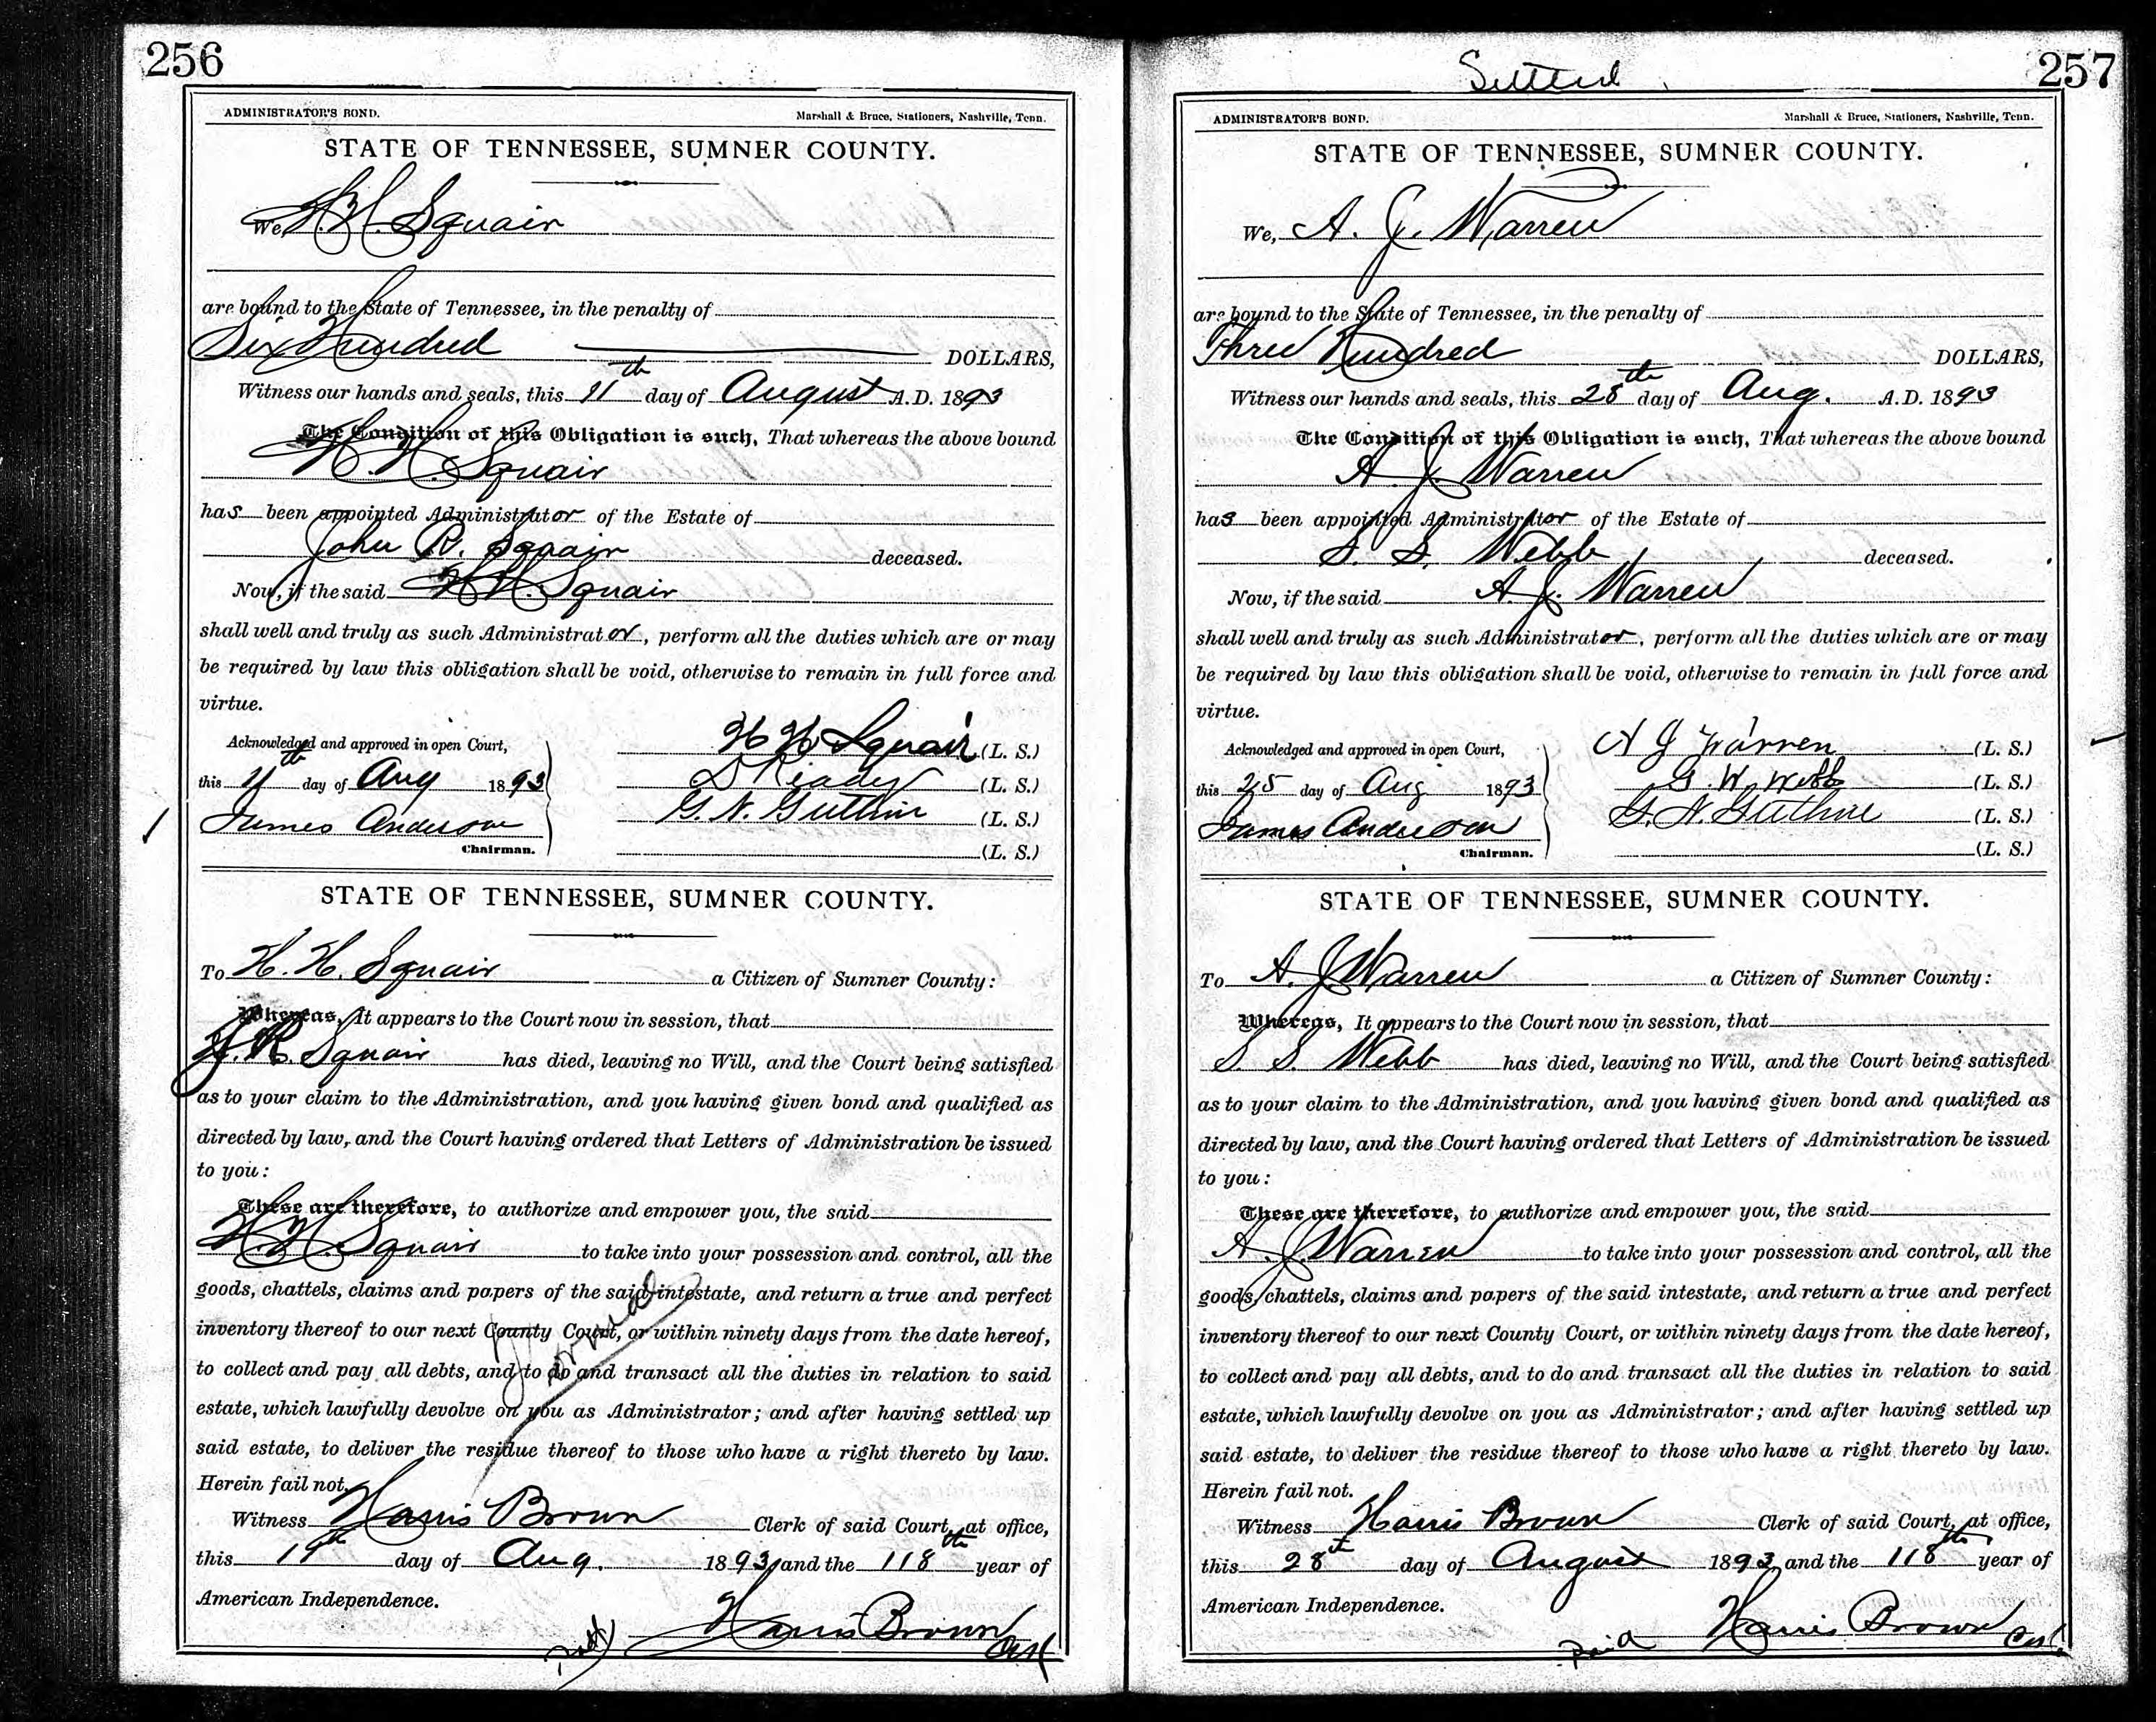 256
ADMINISTRATOR'S BOND. Marshall & Bruce, Stationers, Nashville, Tenn.
STATE OF TENNESSEE, SUMNER COUNTY.
We, H. H. Squair
are bound to the State of Tennessee, in the penalty of
Six Hundred DOLLARS,
Witness our hands and seals, this 11th day of August A.D. 1893
The Condition of this Obligation is such, That whereas the above bound
H. H. Squair
has been appointed Administrator of the Estate of
John R. Squair deceased.
Now, if the said H. H. Squair
shall well and truly as such Administrator, perform all the duties which are or may
be required by law this obligation shall be void, otherwise to remain in full force and
virtue.
Acknowledged and approved in open Court,
this 11th day of Aug 1893
James Anderson
Chairman.
H H Squair (L. S.)
(L. S.)
G. N. Guthrie (L. S.)
(L. S.)
STATE OF TENNESSEE, SUMNER COUNTY.
To H. H. Squair a Citizen of Sumner County:
Whereas, It appears to the Court now in session, that
J. R. Squair has died, leaving no Will, and the Court being satisfied
as to your claim to the Administration, and you having given bond and qualified as
directed by law, and the Court having ordered that Letters of Administration be issued
to you:
These are therefore, to authorize and empower you, the said
H. H. Squair to take into your possession and control, all the
goods, chattels, claims and papers of the said intestate, and return a true and perfect
inventory thereof to our next County Court, or within ninety days from the date hereof,
to collect and pay all debts, and to do and transact all the duties in relation to said
estate, which lawfully devolve on you as Administrator; and after having settled up
said estate, to deliver the residue thereof to those who have a right thereto by law.
Herein fail not.
Witness Harris Brown Clerk of said Court, at office,
this 19th day of Aug. 1893, and the 118th year of
American Independence.
Harris Brown Clk
257
Settled
ADMINISTRATOR'S BOND. Marshall & Bruce, Stationers, Nashville, Tenn.
STATE OF TENNESSEE, SUMNER COUNTY.
We, A. J. Warren
are bound to the State of Tennessee, in the penalty of
Three Hundred DOLLARS,
Witness our hands and seals, this 28th day of Aug. A.D. 1893
The Condition of this Obligation is such, That whereas the above bound
A. J. Warren
has been appointed Administrator of the Estate of
S. S. Webb deceased.
Now, if the said A. J. Warren
shall well and truly as such Administrator, perform all the duties which are or may
be required by law this obligation shall be void, otherwise to remain in full force and
virtue.
Acknowledged and approved in open Court,
this 28 day of Aug 1893
James Anderson
Chairman.
A J Warren (L. S.)
G. W. Webb (L. S.)
G. N. Guthrie (L. S.)
(L. S.)
STATE OF TENNESSEE, SUMNER COUNTY.
To A. J. Warren a Citizen of Sumner County:
Whereas, It appears to the Court now in session, that
S. S. Webb has died, leaving no Will, and the Court being satisfied
as to your claim to the Administration, and you having given bond and qualified as
directed by law, and the Court having ordered that Letters of Administration be issued
to you:
These are therefore, to authorize and empower you, the said
A. J. Warren to take into your possession and control, all the
goods, chattels, claims and papers of the said intestate, and return a true and perfect
inventory thereof to our next County Court, or within ninety days from the date hereof,
to collect and pay all debts, and to do and transact all the duties in relation to said
estate, which lawfully devolve on you as Administrator; and after having settled up
said estate, to deliver the residue thereof to those who have a right thereto by law.
Herein fail not.
Witness Harris Brown Clerk of said Court, at office,
this 28th day of August 1893, and the 118th year of
American Independence.
Paid Harris Brown Clk.